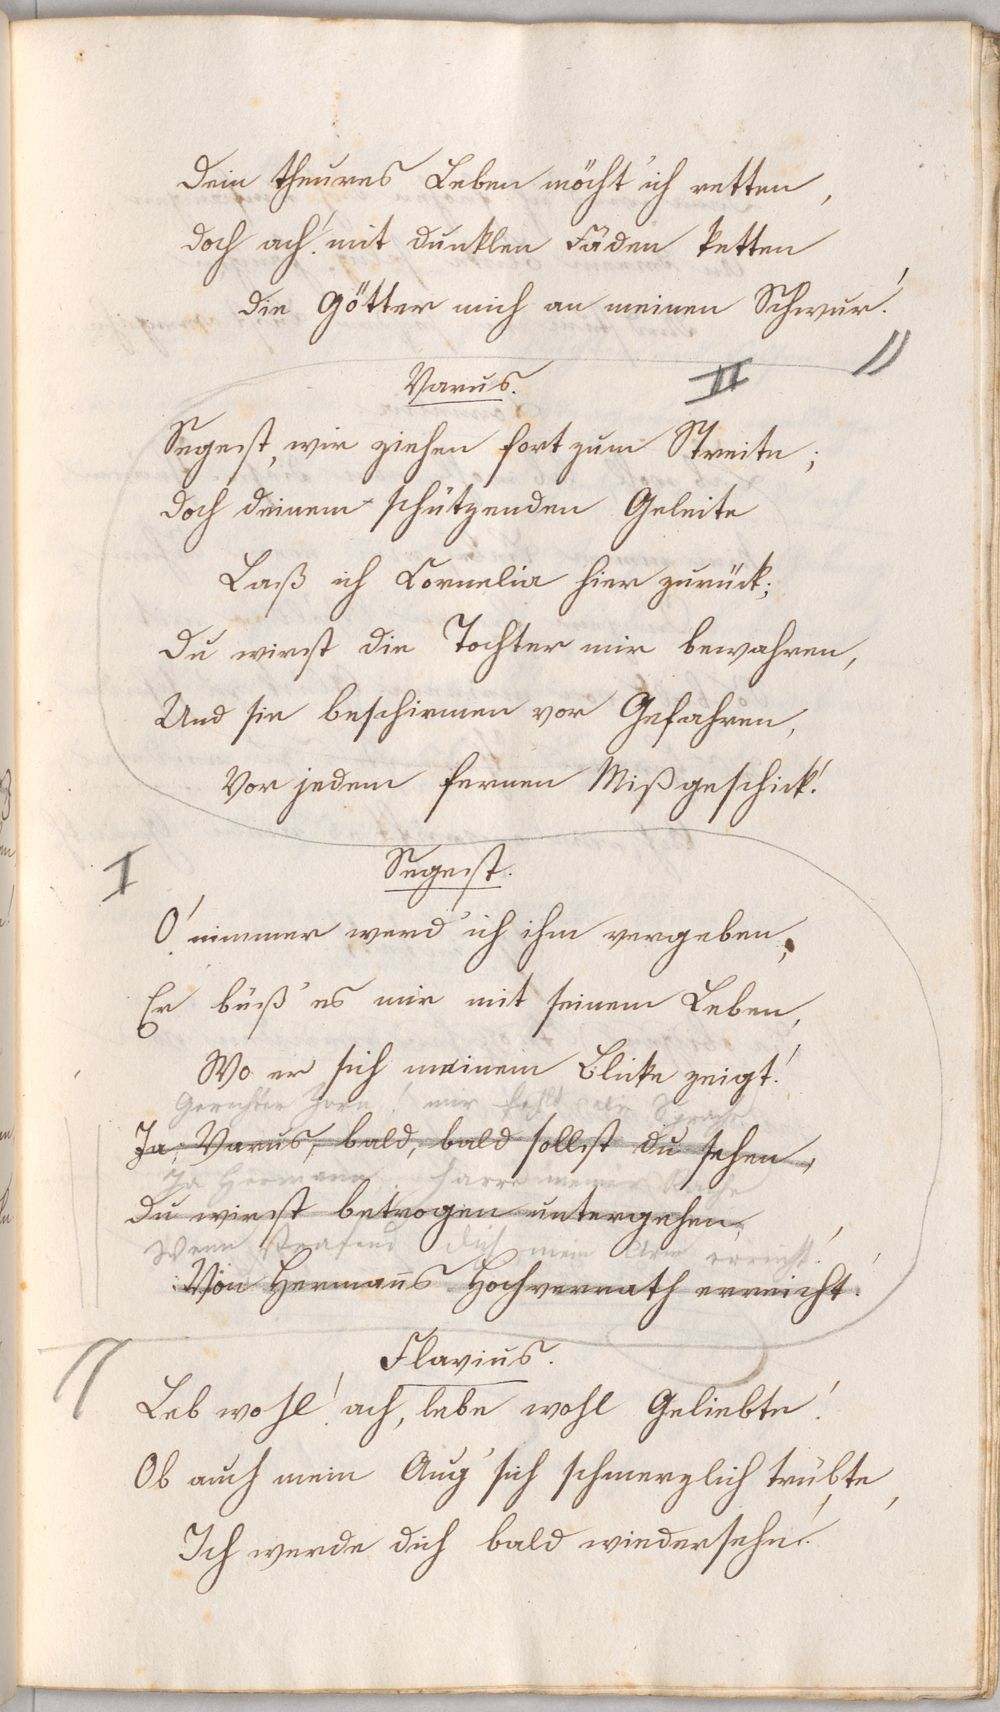 Dein theures Leben möcht' ich retten,
Doch ach! mit dunklen Fäden ketten
Die Götter mich an meinen Schwur!
II
Varus.
Segest, wir ziehen fort zum Streite;
Doch deinem schützenden Geleite
Laß ich Cornelia hier zurück;
Du wirst die Tochter mir bewahren,
Und sie beschirmen vor Gefahren,
Vor jedem fernen Mißgeschick!
I
Segest.
O! nimmer werd' ich ihm vergeben,
Er büß' es mir mit seinem Leben,
Wo er sich meinem Blicke zeigt!
Gerechter Zorn! mir fehlt die Sprache
Ja, Varus, bald, bald sollst du sehen,
Ja Hermann harre meiner Rache
Du wirst betrogen untergehen,
Wenn strafend dich mein Arm erreicht!
Von Hermanns Hochverrath erreicht!
Flavius.
Leb wohl! ach, lebe wohl Geliebte!
Ob auch mein Aug' sich schmerzlich trübte,
Ich werde dich bald wiedersehn!